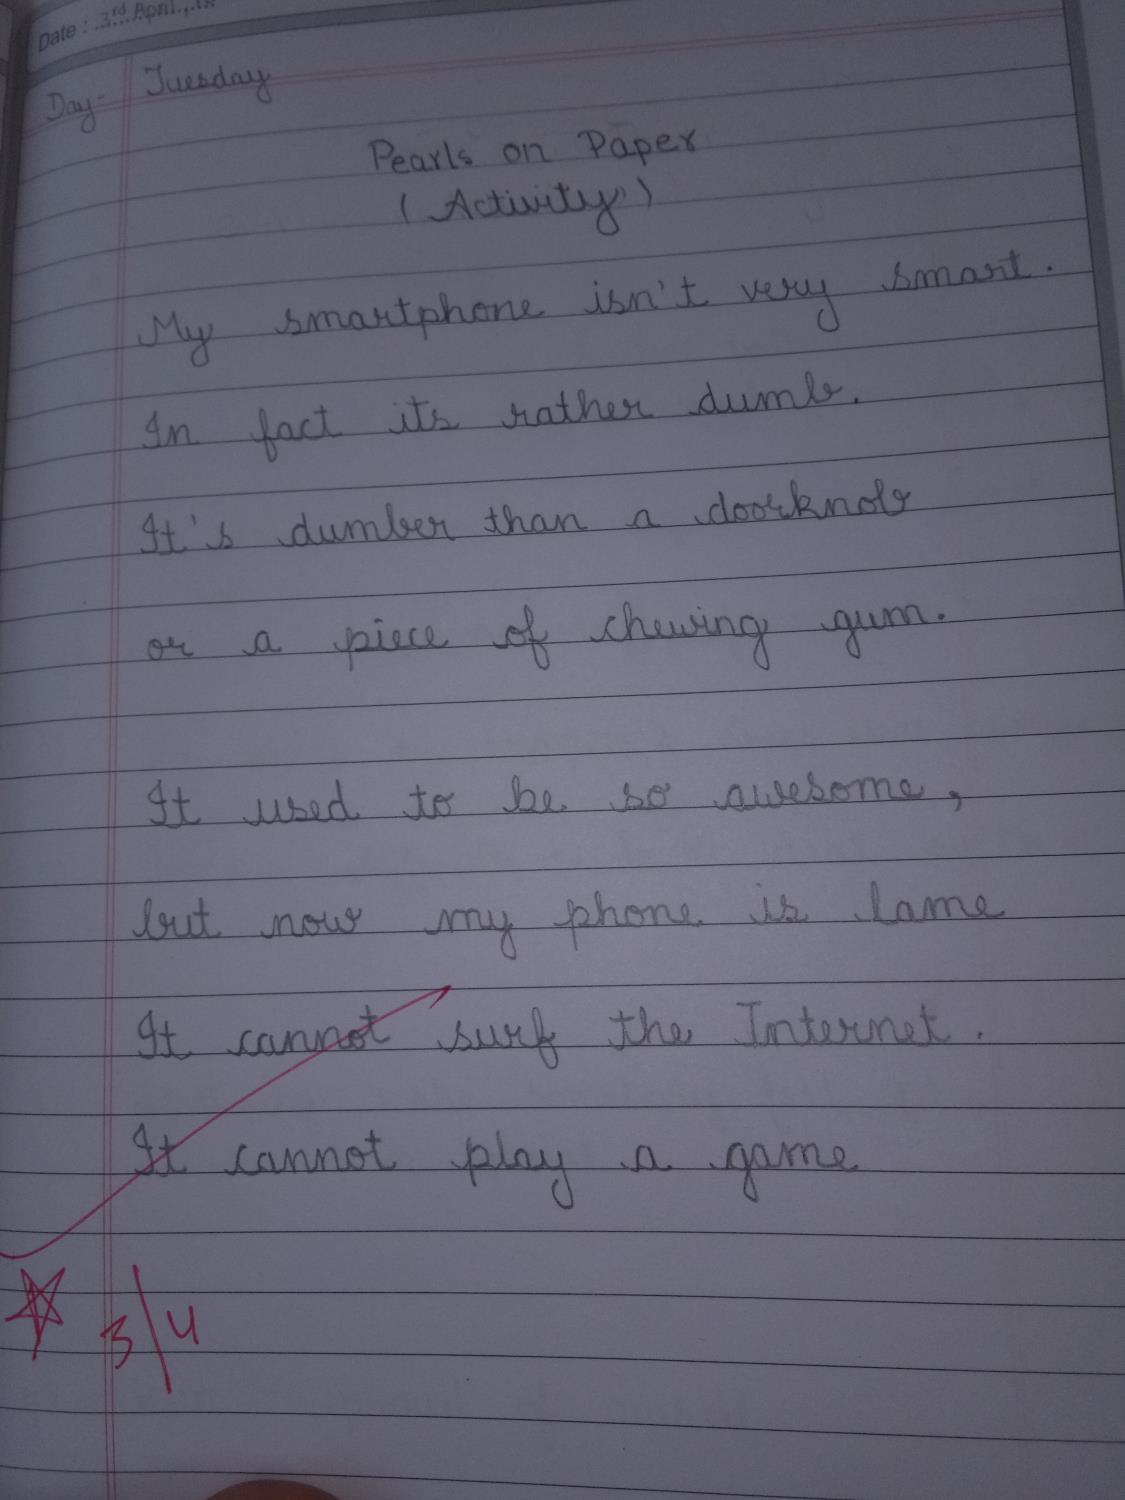 Date : 3rd April, 18
Day- Tuesday
Pearls on Paper
(Activity)
My smartphone isn't very smart.
In fact its rather dumb.
It's dumber than a doorknob
or a piece of chewing gum.
It used to be so awesome,
but now my phone is lame
It cannot surf the Internet.
It cannot play a game
3/4